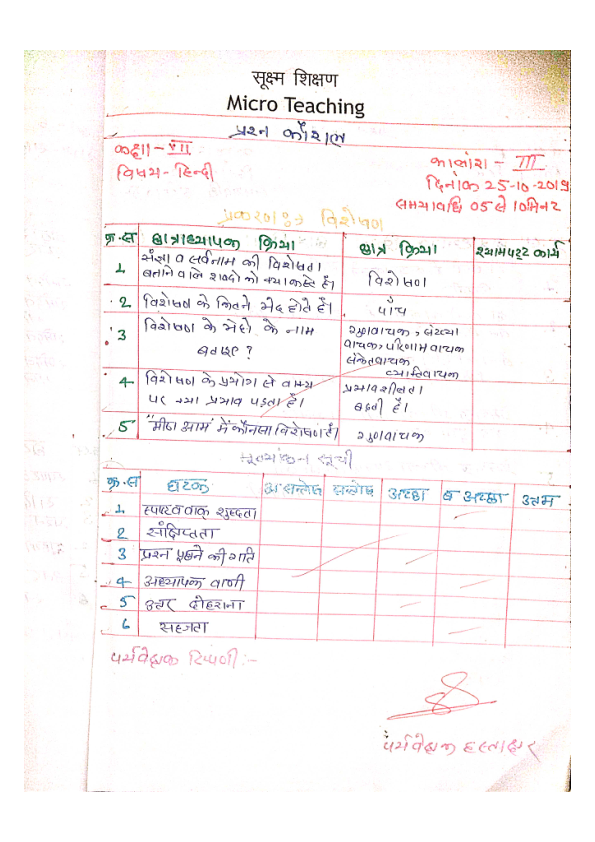 सूक्ष्म शिक्षण
Micro Teaching
प्रश्न कौशल
कक्षा - VII
विषय - हिन्दी
कालांश - III
दिनांक 25-10-2019
समयावधि 05 से 10 मिनट
प्रकरण :→ विशेषण
क्र.स छात्राध्यापक क्रिया छात्र क्रिया श्यामपट्ट कार्य
1 संज्ञा व सर्वनाम की विशेषता बताने वाले शब्दो को क्या कहते है। विशेषण
2 विशेषण के कितने भेद होते है। पाँच
3 विशेषण के भेदो के नाम बताइए ? गुणवाचक, संख्या वाचक, परिणाम वाचक संकेतवाचक व्यक्तिवाचक
4 विशेषण के प्रयोग से वाक्य पर क्या प्रभाव पड़ता है। प्रभावशीलता बढ़ती है।
5 "मीठा आम" में कौनसा विशेषण है। गुणवाचक
मूल्यांकन सूची
क्र.स घटक असन्तोष सन्तोष अच्छा ब अच्छा उत्तम
1 स्पष्टव वाक् शुद्धता
2 संक्षिप्तता
3 प्रश्न पूछने की गति
4 अध्यापक वाणी
5 उत्तर दोहराना
6 सहजता
पर्यवेक्षक टिप्पणी :-
पर्यवेक्षक हस्ताक्षर